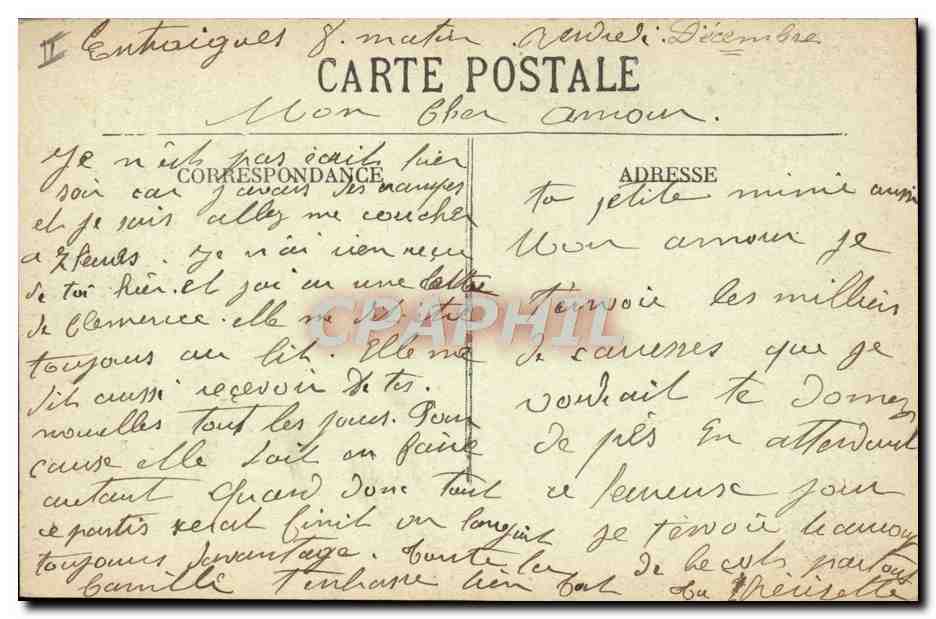 II Entraigues 8. matin vendredi Décembre
CARTE POSTALE
Mon Cher amour.
CORRESPONDANCE
Je n'ets pas écrit hier
soir car j'avais des crampes
et je suis allez me coucher
a 7 heures. Je n'ai rien reçu
de toi hier. et j'ai eu une lettre
de Clemence. elle me dit etre
toujours au lit. Elle me
dit aussi reçevoir de tes.
nouvelles tout les jours. Pour
cause elle doit en faire
autant Quand donc tout
ce partis serat finit on languit
toujours davantage. toute la
famille t'enbrasse bien fort
ADRESSE
ta petite mimi aussi
Mon amour je
t'envoie les milliers
de caresses que je
voudrait te donner
de près En attendant
ce heureux jour
je t'envoie
de becots partout
ta
CPAPHIL